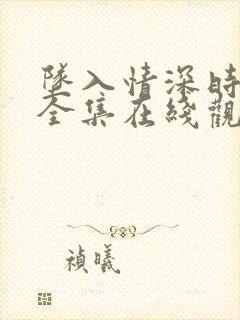 墜入情深時
全集在綫觀
禎曦